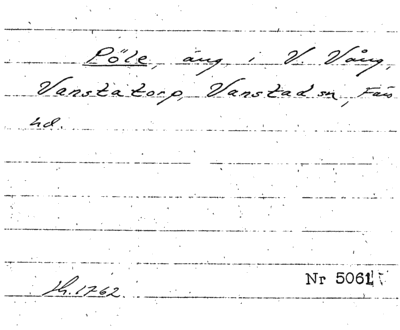 Pöle, äng i V. Vång,
Vanstatorp, Vanstad sn, Färs
hd.
Nr 5061
h. 1762